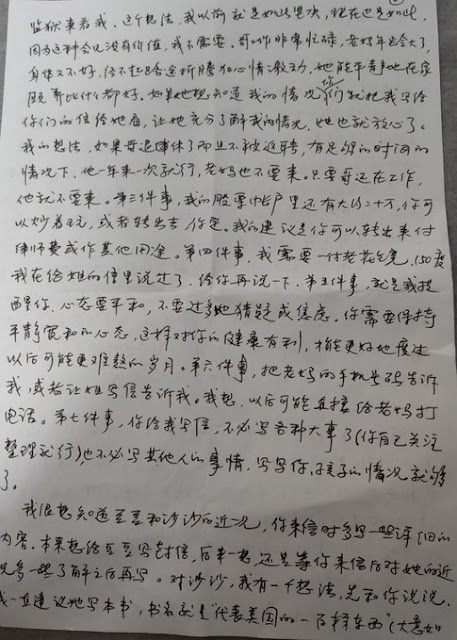 监狱来看我。这个想法，我以前就是如此坚决，现在也是如此，
因为这种会见没有价值，我不需要。哥工作非常忙碌，老妈年纪大了，
身体又不好，经不起长途折腾和心情激动，她能平静地在家
颐养比什么都好。如果她想知道我的情况，你们就把我写给
你们的信给她看，让她充分了解我的情况，她也就放心了。
我的想法，如果哥退休了而且不被返聘，有足够的时间的
情况下，他一年来一次就行，老妈也不要来。只要哥还在工作，
他就不要来。第三件事，我的股票帐户里还有大约二十万，你可
以炒着玩，或者转出去，你定。我的建议是你可以转出来付
律师费或作其他用途。第四件事，我需要一付老花眼镜，150度
我在给姐的信里说过了，给你再说一下。第五件事，就是我提
醒你，心态要平和，不要过多地猜疑或焦虑，你需要保持
平静宽和的心态，这样对你的健康有利，才能更好地度过
以后可能更难熬的岁月。第六件事，把老妈的手机号码告诉
我，或者让姐写信告诉我。我想，以后可能直接给老妈打
电话。第七件事，你给我写信，不必写各种大事了（你自己关注
整理就行），也不必写其他人的事情，写写你、孩子的情况就够
了。
我很想知道豆豆和沙沙的近况，你来信时多写一些详细的
内容。本来想给豆豆写封信，后来一想，还是等你来信后对她的近
况多一些了解之后再写。对沙沙，我有一个想法，先和你说说，
我一直建议她写本书，书名就是“代表美国的一百样东西”（大意如